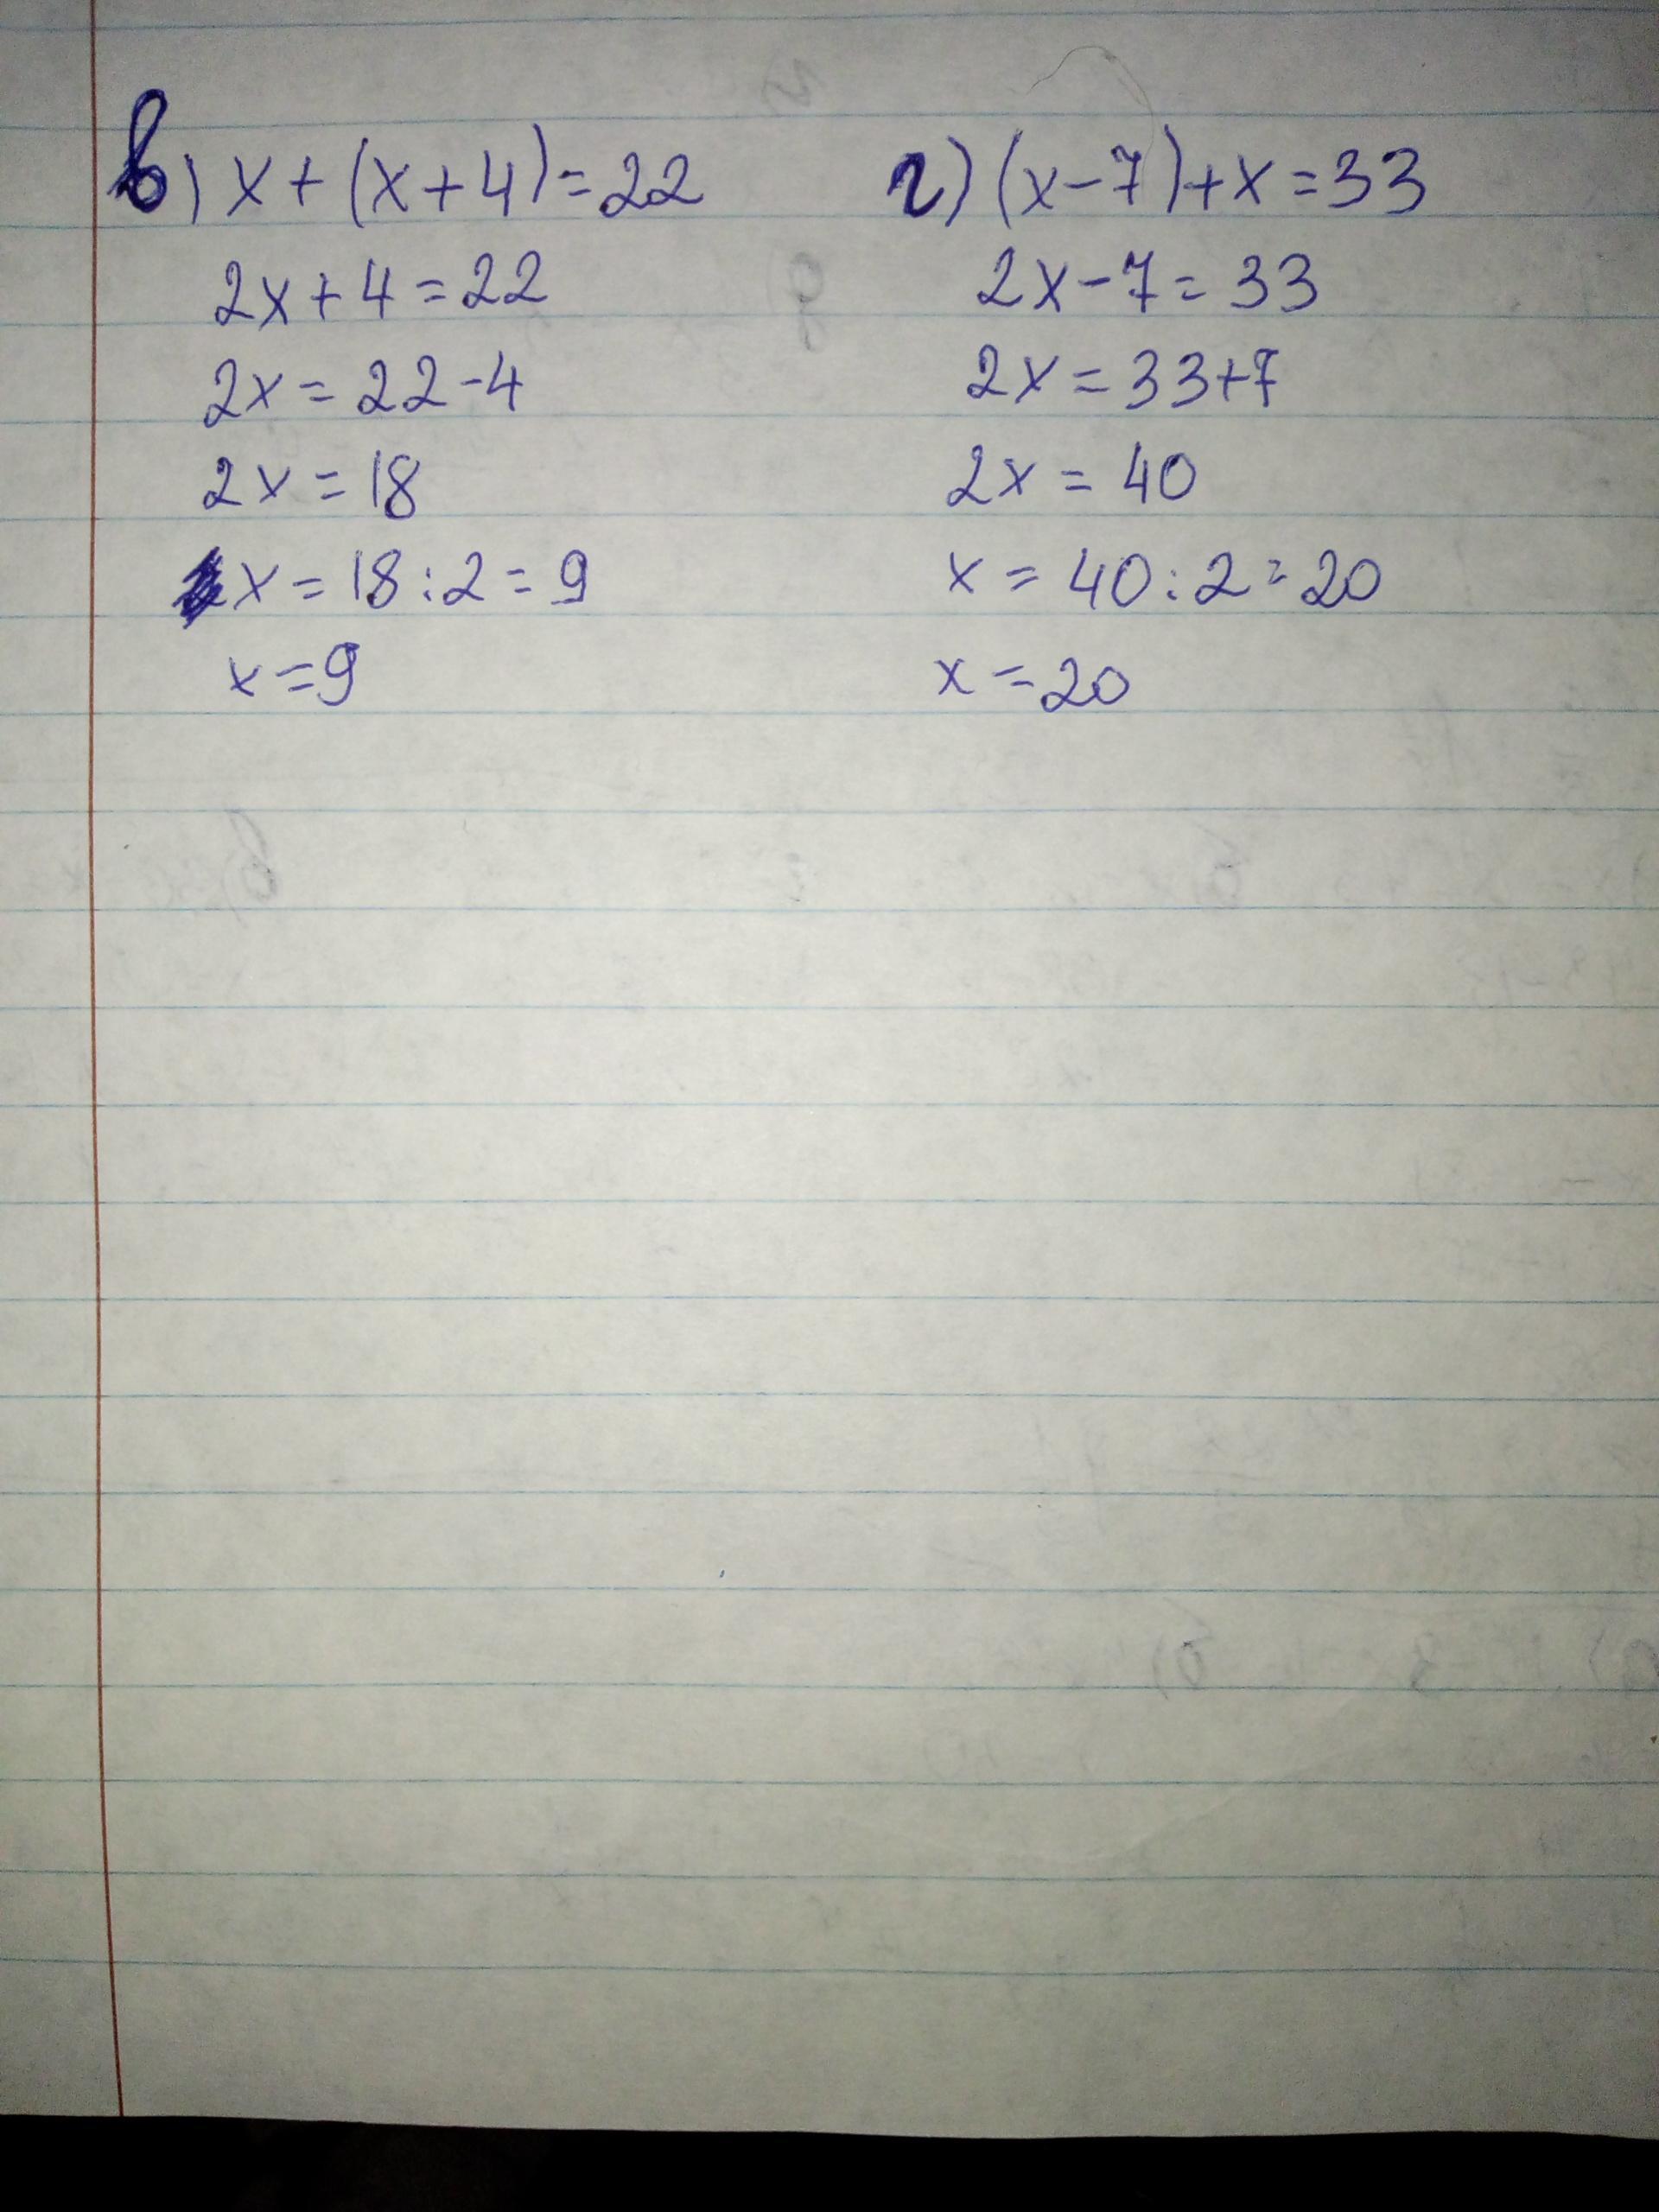 в) x+(x+4)=22
2x+4=22
2x=22-4
2x=18
x=18:2=9
x=9
г) (x-7)+x=33
2x-7=33
2x=33+7
2x=40
x=40:2=20
x=20